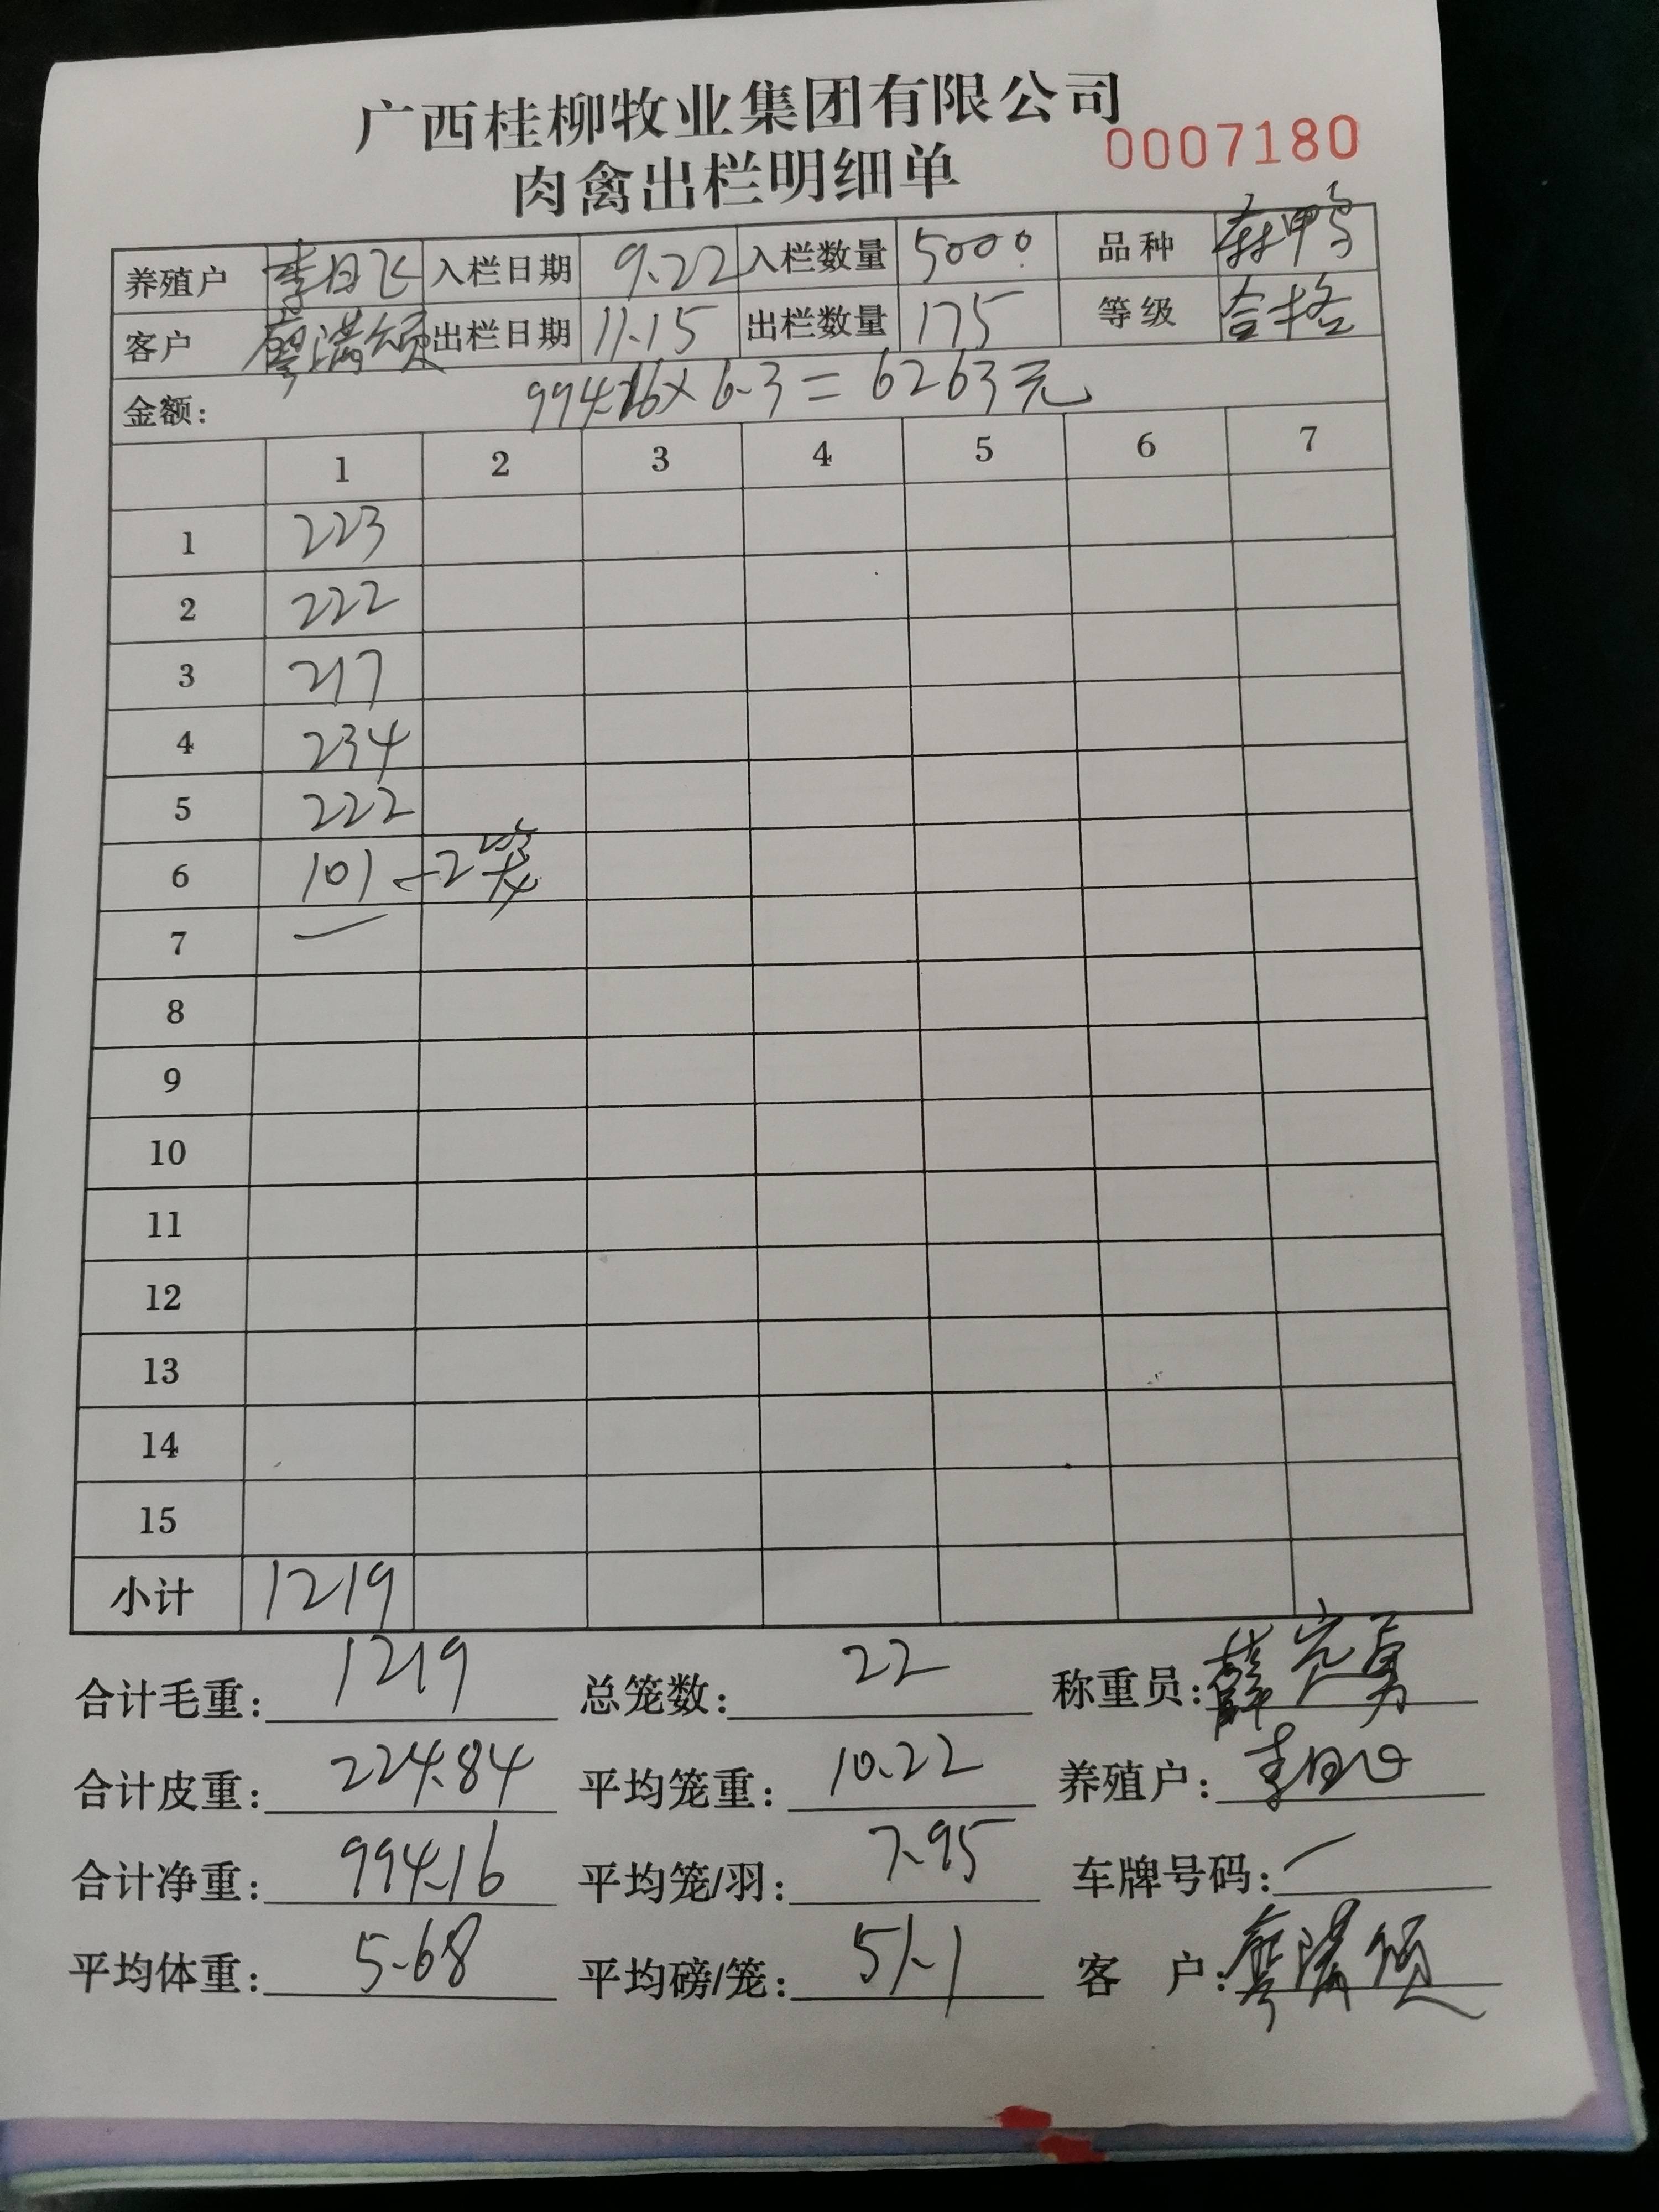 广西桂柳牧业集团有限公司
肉禽出栏明细单 0007180
养殖户 李日飞 入栏日期 9.22 入栏数量 5000 品种 麻鸭
客户 廖满颂 出栏日期 11.15 出栏数量 175 等级 合格
金额: 994.16×6.3=6263元
1 2 3 4 5 6 7
1 223
2 222
3 217
4 234
5 222
6 101-2笼
7 —
8
9
10
11
12
13
14
15
小计 1219
合计毛重: 1219 总笼数: 22 称重员: 薛
合计皮重: 224.84 平均笼重: 10.22 养殖户: 李日飞
合计净重: 994.16 平均笼/羽: 7.95 车牌号码: —
平均体重: 5.68 平均磅/笼: 51.1 客户: 廖满颂